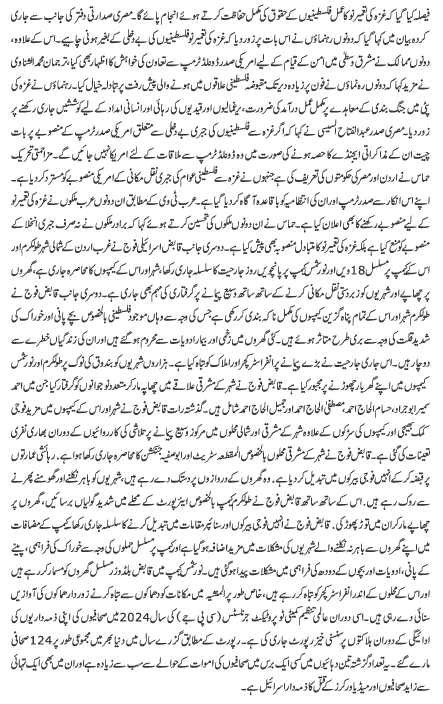 فیصلہ کیا گیا کہ غزہ کی تعمیر نو کا عمل فلسطینیوں کے حقوق کی مکمل حفاظت کرتے ہوئے انجام پائے گا۔ مصری صدارتی دفتر کی جانب سے جاری
کردہ بیان میں کہا گیا کہ دونوں رہنماؤں نے اس بات پر زور دیا کہ غزہ کی تعمیر نو فلسطینیوں کی بے دخلی کے بغیر ہونی چاہیے۔ اس کے علاوہ،
دونوں ممالک نے مشرق وسطیٰ میں امن کے قیام کے لیے امریکی صدر ڈونلڈ ٹرمپ سے تعاون کی خواہش کا اظہار بھی کیا، ترجمان محمد الشناوی
نے مزید کہا کہ دونوں رہنماؤں نے فون پر زیادہ دیر تک مقبوضہ فلسطینی علاقوں میں ہونے والی پیش رفت پر تبادلہ خیال کیا۔ انہوں نے غزہ کی
پٹی میں جنگ بندی کے معاہدے پر مکمل عمل درآمد کی ضرورت، یرغمالیوں اور قیدیوں کی رہائی اور انسانی امداد کے لیے کوششیں جاری رکھنے پر
زور دیا۔ مصری صدر عبدالفتاح السیسی نے کہا کہ اگر غزہ سے فلسطینیوں کی جبری بے دخلی سے متعلق امریکی صدر ٹرمپ کے منصوبے پر بات
چیت ان کے مذاکراتی ایجنڈے کا حصہ ہونے کی صورت میں وہ ڈونلڈ ٹرمپ سے ملاقات کے لئے امریکا نہیں جائیں گے۔ مزاحمتی تحریک
حماس نے اردن اور مصر کی حکومتوں کی تعریف کی ہے جنہوں نے غزہ سے فلسطینی عوام کی جبری نقل مکانی کے امریکی منصوبے کو مسترد کر دیا ہے۔
اپنے اس انکار سے صدر ٹرمپ اور ان کی انتظامیہ کو باقاعدہ آگاہ کر دیا گیا ہے۔ عرب ٹی وی کے مطابق ان دونوں عرب ملکوں نے غزہ کی تعمیر نو کے
لیے منصوبے پر رکھنے کا بھی اعلان کیا ہے۔ حماس نے ان دونوں ملکوں کی تحسین کرتے ہوئے کہا کہ برادر ملکوں نے نہ صرف جبری انخلا کے
منصوبے کو منع کیا ہے بلکہ غزہ کی تعمیر نو کا متبادل منصوبہ بھی پیش کیا ہے۔ دوسری جانب قابض اسرائیلی فوج نے غرب اردن کے شمالی شہر طولکرم اور
اس کے کیمپ پر مسلسل 18 ویں اور نور شمس کیمپ پر پانچویں روز جارحیت کا سلسلہ جاری رکھا، شہر اور اس کے کیمپوں کا محاصرہ جاری ہے، گھروں
پر چھاپے اور شہریوں کو زبردستی نقل مکانی کرنے کے ساتھ ساتھ وسیع پیمانے پر گرفتاری کی مہم بھی جاری ہے۔ دوسری جانب قابض فوج نے
طولکرم شہر اور اس کے تمام پناہ گزین کیمپوں کی مکمل ناکہ بندی کر رکھی ہے جس کی وجہ سے وہاں موجود فلسطینی بالخصوص بچے پانی اور خوراک کی
شدید قلت کی وجہ سے بری طرح متاثر ہوئے ہیں۔ کئی گھروں میں زخمی اور بیمار ادویات سے محروم ہو گئے ہیں اور ان کی زندگیاں خطرے سے
دوچار ہیں۔ اس جاری جارحیت نے بڑے پیمانے پر انفراسٹرکچر اور املاک کو تباہ کیا ہے۔ ہزاروں شہریوں کو بندوق کی نوک پر طولکرم اور نور شمس
کیمپوں میں اپنے گھر بار چھوڑنے پر مجبور کیا ہے۔ قابض فوج نے شہر کے مشرقی علاقے میں چھاپہ مار کر متعدد نوجوانوں کو گرفتار کیا جن میں احمد
سمیر ابو جراد، حسام الحاج احمد، مصطفیٰ الحاج احمد اور جمیل الحاج احمد شامل ہیں۔ گذشتہ رات قابض فوج نے طولکرم شہر اور اس کے کیمپوں میں مزید فوجی
کمک بھیجی اور کیمپوں کی سڑکوں کے علاوہ شہر کے مشرقی اور شمالی محلوں میں مرکوز وسیع پیمانے پر تلاشی کی کارروائیوں کے دوران بھاری نفری
تعینات کی گئی ہے۔ قابض فوج نے شہر کے مشرقی محلوں بالخصوص المقطعہ سٹریٹ اور ابو صفیہ جنکشن کا محاصرہ جاری رکھا ہوا ہے۔ رہائشی عمارتوں
پر قبضہ کر کے انہیں فوجی بیرکوں میں تبدیل کر دیا ہے۔ وہ گھروں کے دروازوں پر دستک دے رہے ہیں، شہریوں کو باہر نکلنے اور گھومنے پھرنے
سے روک رہے ہیں۔ اس کے ساتھ ساتھ قابض فوج نے طولکرم کیمپ بالخصوص ایئرپورٹ کے محلے میں شدید گولیاں برسائیں، گھروں پر
چھاپے مار کر ان میں توڑ پھوڑ کی۔ قابض فوج نے انہیں فوجی بیرکوں اور سنائپر مقامات میں تبدیل کرنے کا سلسلہ جاری رکھا کیمپ کے مضافات
میں اپنے گھروں سے باہر نہ نکلنے والے شہریوں کی مشکلات میں مزید اضافہ ہو گیا ہے اور کیمپ پر مسلسل حملوں کی وجہ سے خوراک کی فراہمی، پینے
کے پانی، ادویات اور بچوں کے دودھ کی فراہمی میں مشکلات پیدا ہو گئی ہیں۔ نور شمس کیمپ میں قابض بلڈوزر مسلسل گھروں کو مسمار کر رہے ہیں
اور اس کے محلوں کے اندر انفراسٹرکچر کو تباہ کر رہے ہیں، خاص طور پر المنشیہ میں مکانات کو دھماکوں سے تباہ کرنے سے زوردار دھماکوں کی آوازیں
سنائی دے رہی ہیں۔ اسی دوران عالمی تنظیم کمیٹی ٹو پروٹیکٹ جرنلسٹس (سی پی جے) کی سال 2024 میں صحافیوں کی اپنی ذمہ داریوں کی
ادائیگی کے دوران ہلاکتوں پر سنسنی خیز رپورٹ جاری کی ہے۔ رپورٹ کے مطابق گزرے سال میں دنیا بھر میں مجموعی طور پر 124 صحافی
مارے گئے۔ یہ تعداد گزشتہ تین دہائیوں میں کسی ایک برس میں صحافیوں کی اموات کے حوالے سے سب سے زیادہ ہے اور ان میں ایک تہائی
سے زاید صحافیوں اور میڈیا ورکرز کے قتل کا ذمہ دار اسرائیل ہے۔